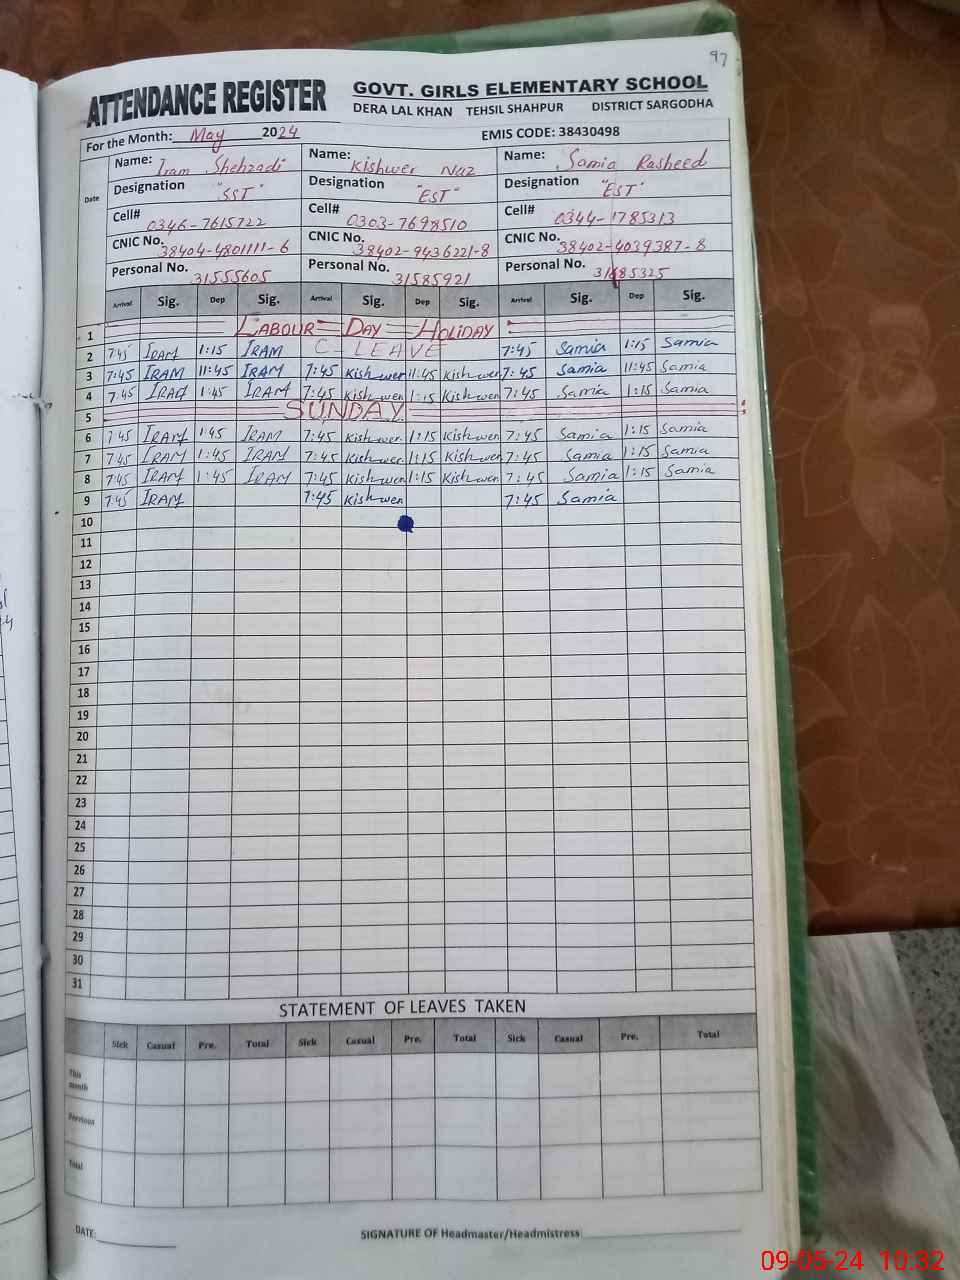 97
ATTENDANCE REGISTER GOVT. GIRLS ELEMENTARY SCHOOL
DERA LAL KHAN TEHSIL SHAHPUR DISTRICT SARGODHA
For the Month: May 2024 EMIS CODE: 38430498
Date Name: Iram Shehzadi Name: Kishwer Naz Name: Samia Rasheed
Designation "SST" Designation "EST" Designation "EST"
Cell# 0346-7615722 Cell# 0303-7698510 Cell# 0344-1785313
CNIC No. 38404-4801111-6 CNIC No. 38402-9436221-8 CNIC No. 38402-4039387-8
Personal No. 31555605 Personal No. 31585921 Personal No.
Arrival Sig. Dep Sig. Arrival Sig. Dep Sig. Arrival Sig. Dep Sig.
1 LABOUR DAY HOLIDAY
2 7:45 IRAM 1:15 IRAM C-LEAVE 7:45 Samia 1:15 Samia
3 7:45 IRAM 11:45 IRAM 7:45 Kishwer 11:45 Kishwer 7:45 Samia 11:45 Samia
4 7:45 IRAM 1:45 IRAM 7:45 Kishwer 1:15 Kishwer 7:45 Samia 1:15 Samia
5 SUNDAY
6 7:45 IRAM 1:45 IRAM 7:45 Kishwer 1:15 Kishwer 7:45 Samia 1:15 Samia
7 7:45 IRAM 1:45 IRAM 7:45 Kishwer 1:15 Kishwer 7:45 Samia 1:15 Samia
8 7:45 IRAM 1:45 IRAM 7:45 Kishwer 1:15 Kishwer 7:45 Samia 1:15 Samia
9 7:45 IRAM 7:45 Kishwer 7:45 Samia
10
11
12
13
14
15
16
17
18
19
20
21
22
23
24
25
26
27
28
29
30
31
STATEMENT OF LEAVES TAKEN
Sick Casual Pre. Total Sick Casual Pre. Total Sick Casual Pre. Total
This month
Previous
Total
DATE: SIGNATURE OF Headmaster/Headmistress
09-05-24 10:32